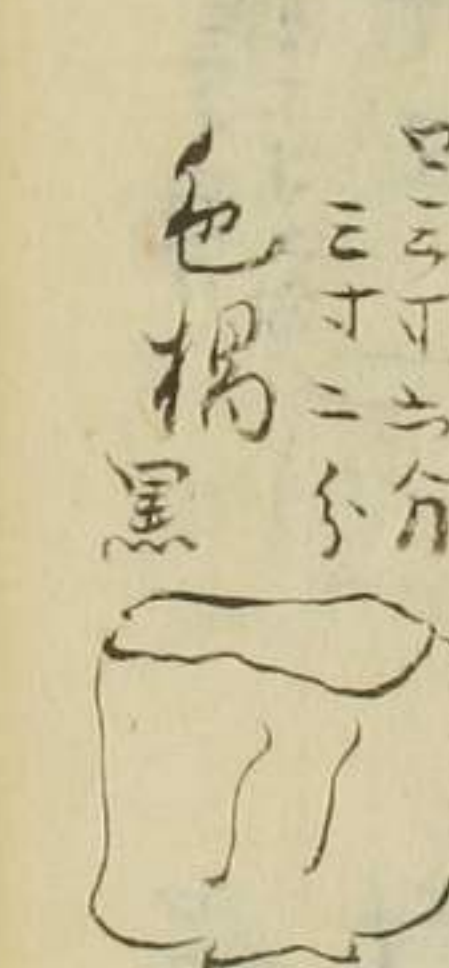 口三寸六分
三寸二分
色楬黒